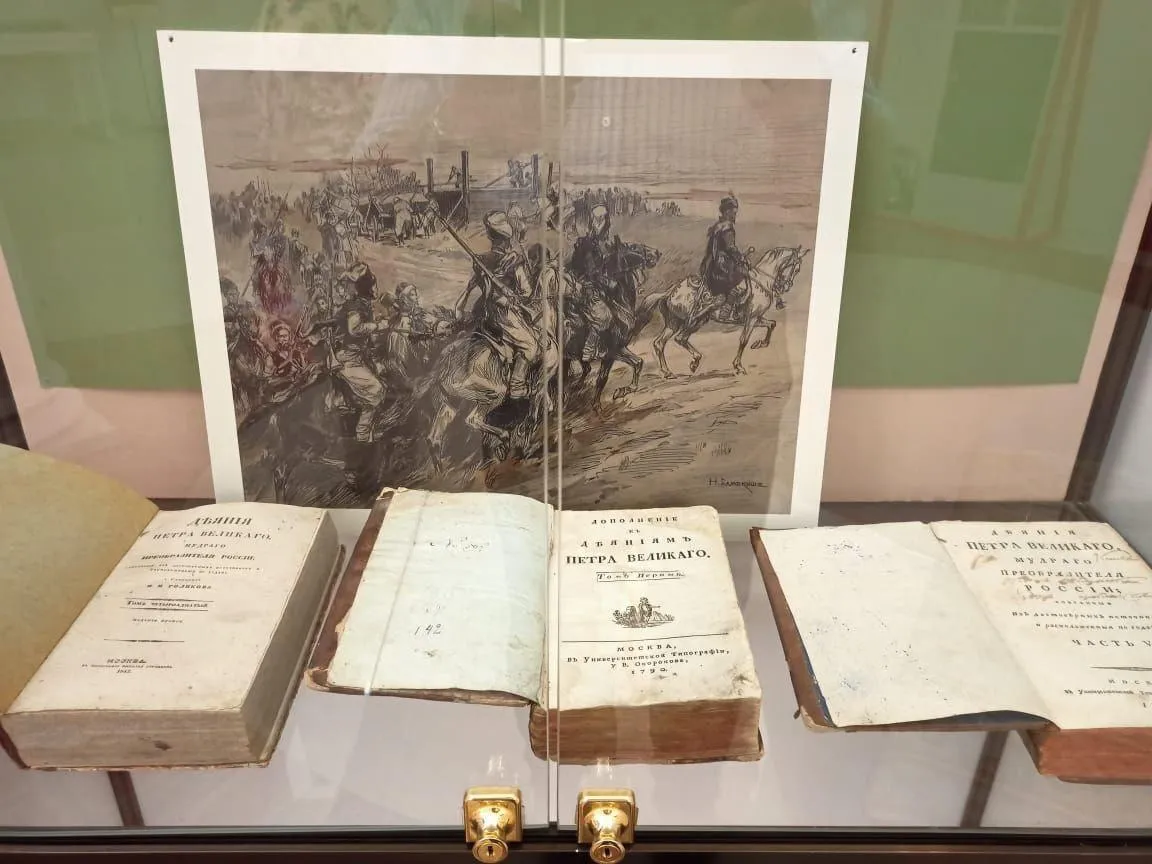 Н. Самокиш
ДѢЯНІЯ
ПЕТРА ВЕЛИКАГО,
МУДРАГО
ПРЕОБРАЗИТЕЛЯ РОССІИ,
И. И. ГОЛИКОВА.
ТОМЪ ЧЕТЫРНАДЦАТЫЙ
ИЗДАНІЕ ВТОРОЕ
МОСКВА.
142
ДОПОЛНЕНІЕ
КЪ
ДѢЯНІЯМЪ
ПЕТРА ВЕЛИКАГО.
Томъ Первый.
МОСКВА,
Въ Университетской Типографіи,
у В. Окорокова,
1790.
ДѢЯНІЯ
ПЕТРА ВЕЛИКАГО,
МУДРАГО
ПРЕОБРАЗИТЕЛЯ
РОССІИ;
Изъ достовѣрныхъ источни
и расположенныя по года
ЧАСТЬ V
МОСК
въ Университетской Ти
1